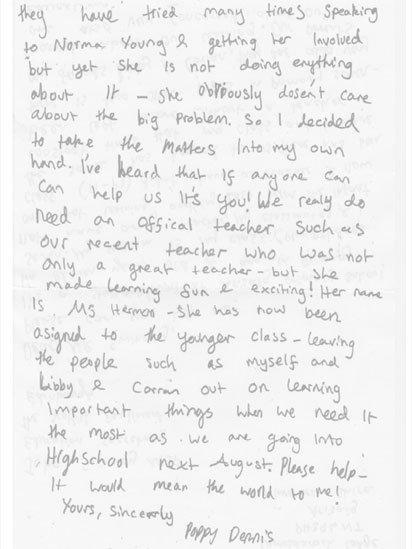 they have tried many times speaking
to Norma Young & getting her involved
but yet she is not doing enything
about it - she obviously dosen't care
about the big problem. So I decided
to take the matters into my own
hand. I've heard that if anyone can
can help us it's you! We realy do
need an offical teacher such as
our recent teacher who was not
only a great teacher - but she
made learning fun & exciting! Her name
is Ms Hermon - she has now been
asigned to the younger class - leaving
the people such as myself and
Libby & Corran out on learning
important things when we need it
the most as we are going into
Highschool next August. Please help -
it would mean the world to me!
Yours, sincerely
Poppy Dennis